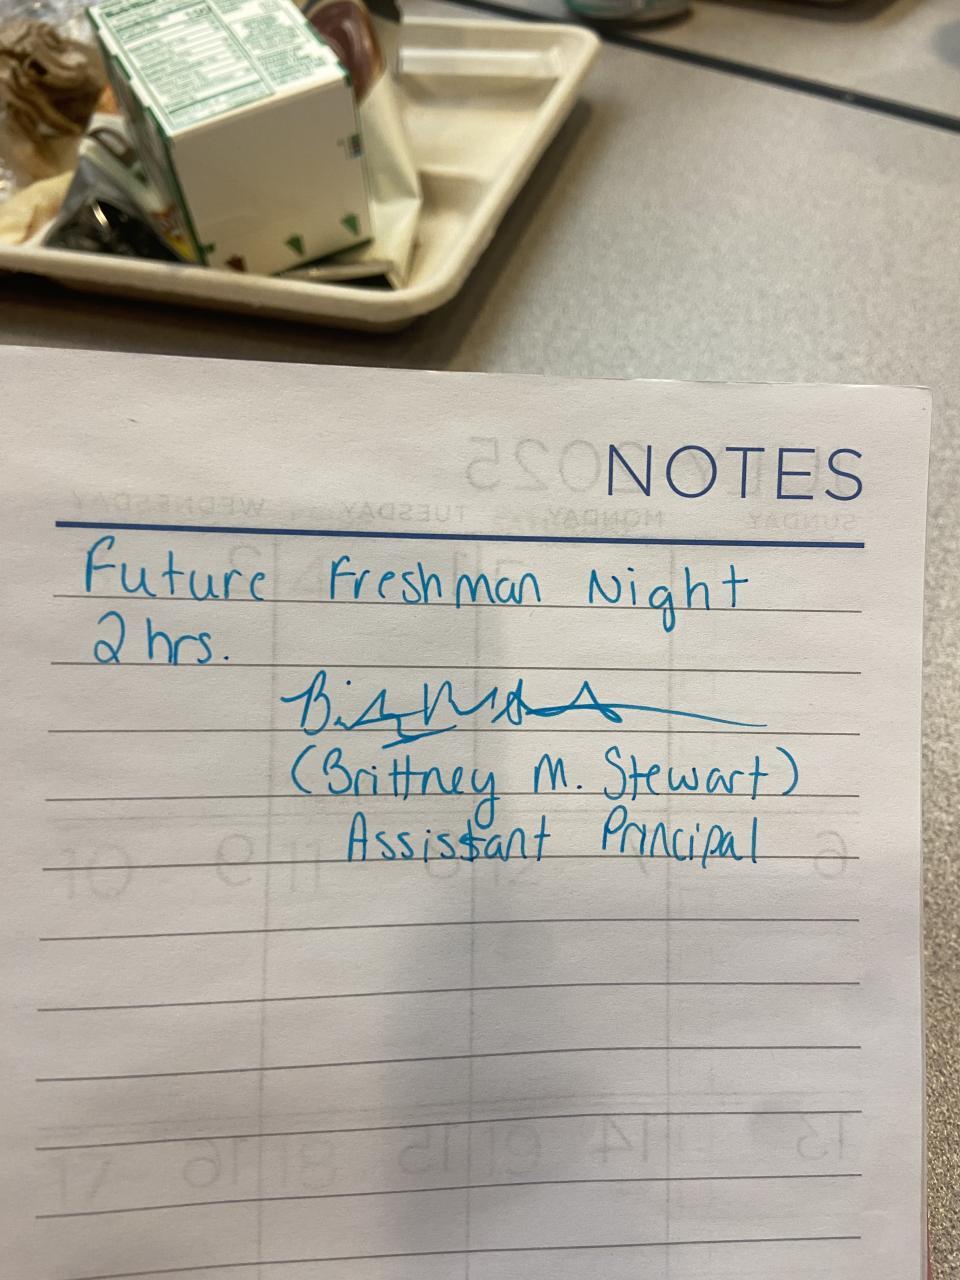 NOTES
Future Freshman Night
2 hrs.
(Brittney M. Stewart)
Assistant Principal